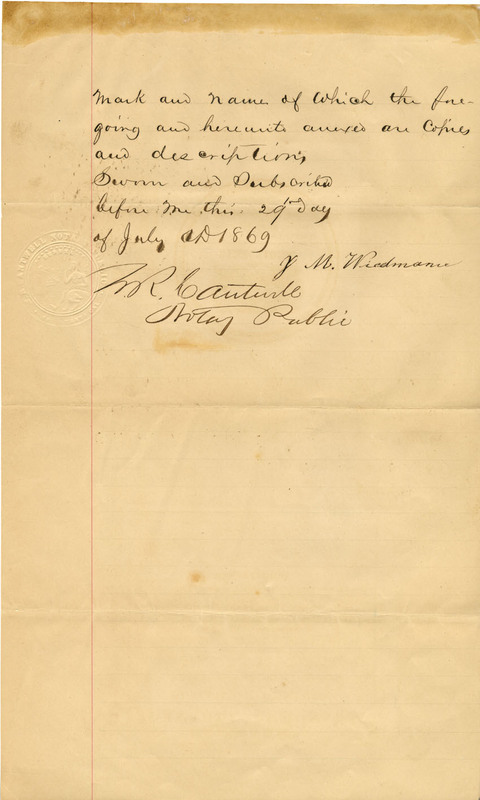 Mark and Name of Which the fore-
going and hereunto anexed are Copies
and descriptions
Sworn and Subscribed
before Me, this 29th Day
of July AD 1869
J M. Wiedmann
W.R. Cantwell
Notary Public